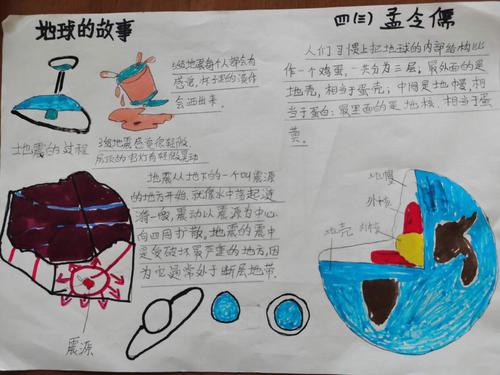 地球的故事
四(三) 孟令儒
人们习惯上把地球的内部结构比
作一个鸡蛋,一共分为三层;最外面的是
地壳,相当于蛋壳;中间是地幔,相
当于蛋白;最里面的是地核,相当于蛋
黄。
5级地震每个人都会有
感觉,杯子里的液体
会洒出来。
3级地震感觉很轻微,
房顶的吊灯有轻微晃动
地震的过程
地震从地下的一个叫震源
的地方开始,就像水中荡起涟
漪一般,震动以震源为中心
向四周扩散,地震的震中
是受破坏最严重的地方,因
为它通常处于断层地带。
震源
地幔
外核
地壳